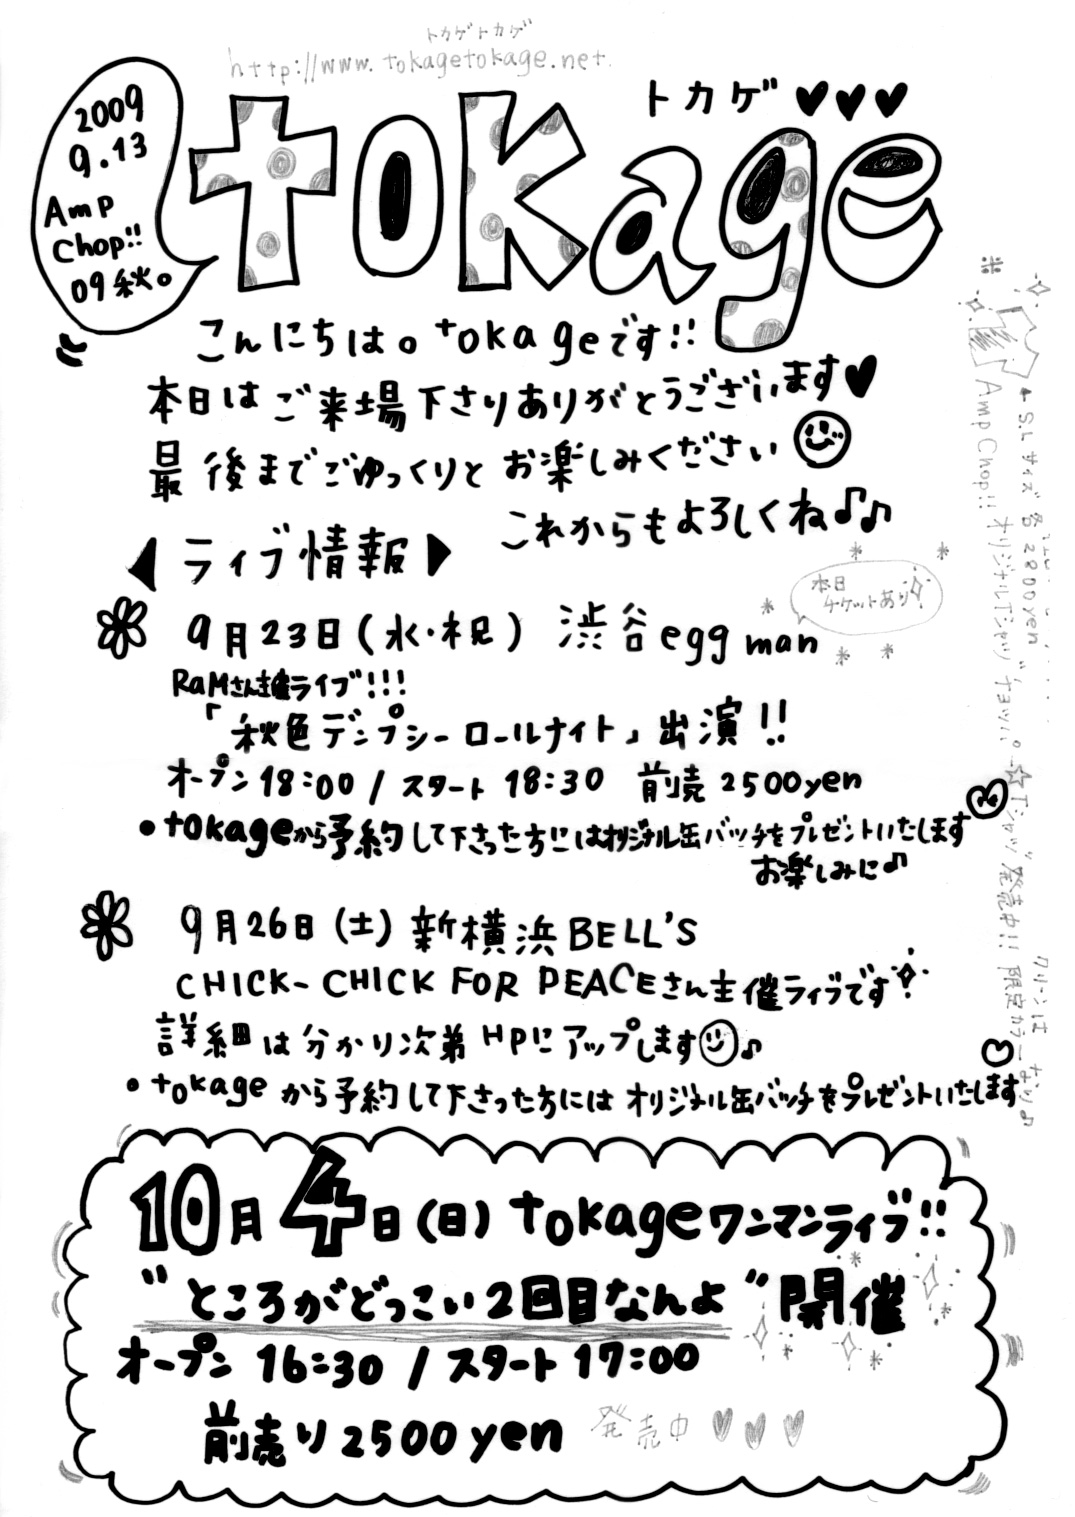 トカゲトカゲ
http://www.tokagetokage.net.
2009
9.13
Amp
Chop!!
09秋。
トカゲ♥♥♥
tokage
こんにちは。tokageです!!
本日はご来場下さりありがとうございます♥
最後までごゆっくりとお楽しみください
これからもよろしくね♫♪
◀ライブ情報▶
本日
チケットあり
9月23日(水・祝) 渋谷eggman
RaMさん主催ライブ!!!
「秋色デンプシーロールナイト」出演!!
オープン18:00 / スタート 18:30 前売 2500yen
・tokageから予約して下さった方にはオリジナル缶バッチをプレゼントいたします
お楽しみに♪
9月26日(土)新横浜BELL'S
CHICK-CHICK FOR PEACEさん主催ライブです
詳細は分かり次第HPにアップします♪
・tokageから予約して下さった方にはオリジナル缶バッチをプレゼントいたします
10月4日(日)tokageワンマンライブ!!
"ところがどっこい2回目なんよ"開催
オープン 16:30 / スタート 17:00
前売り2500yen 発売中♥♥♥
※ AmpChop!! オリジナルTシャツ
S.Lサイズ 各2800yen
☆Tシャツ発売中!! 限定カラーあり♪